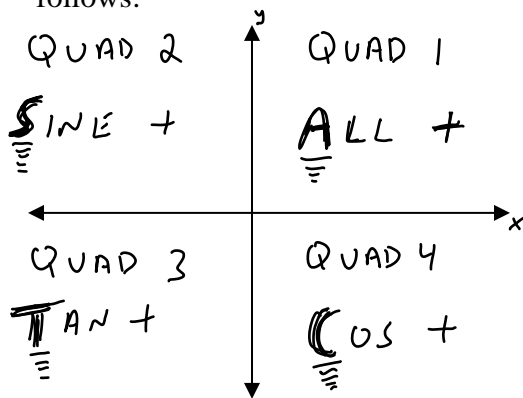 follows:
y
QUAD 2
SINE +
QUAD 1
ALL +
x
QUAD 3
TAN +
QUAD 4
COS +